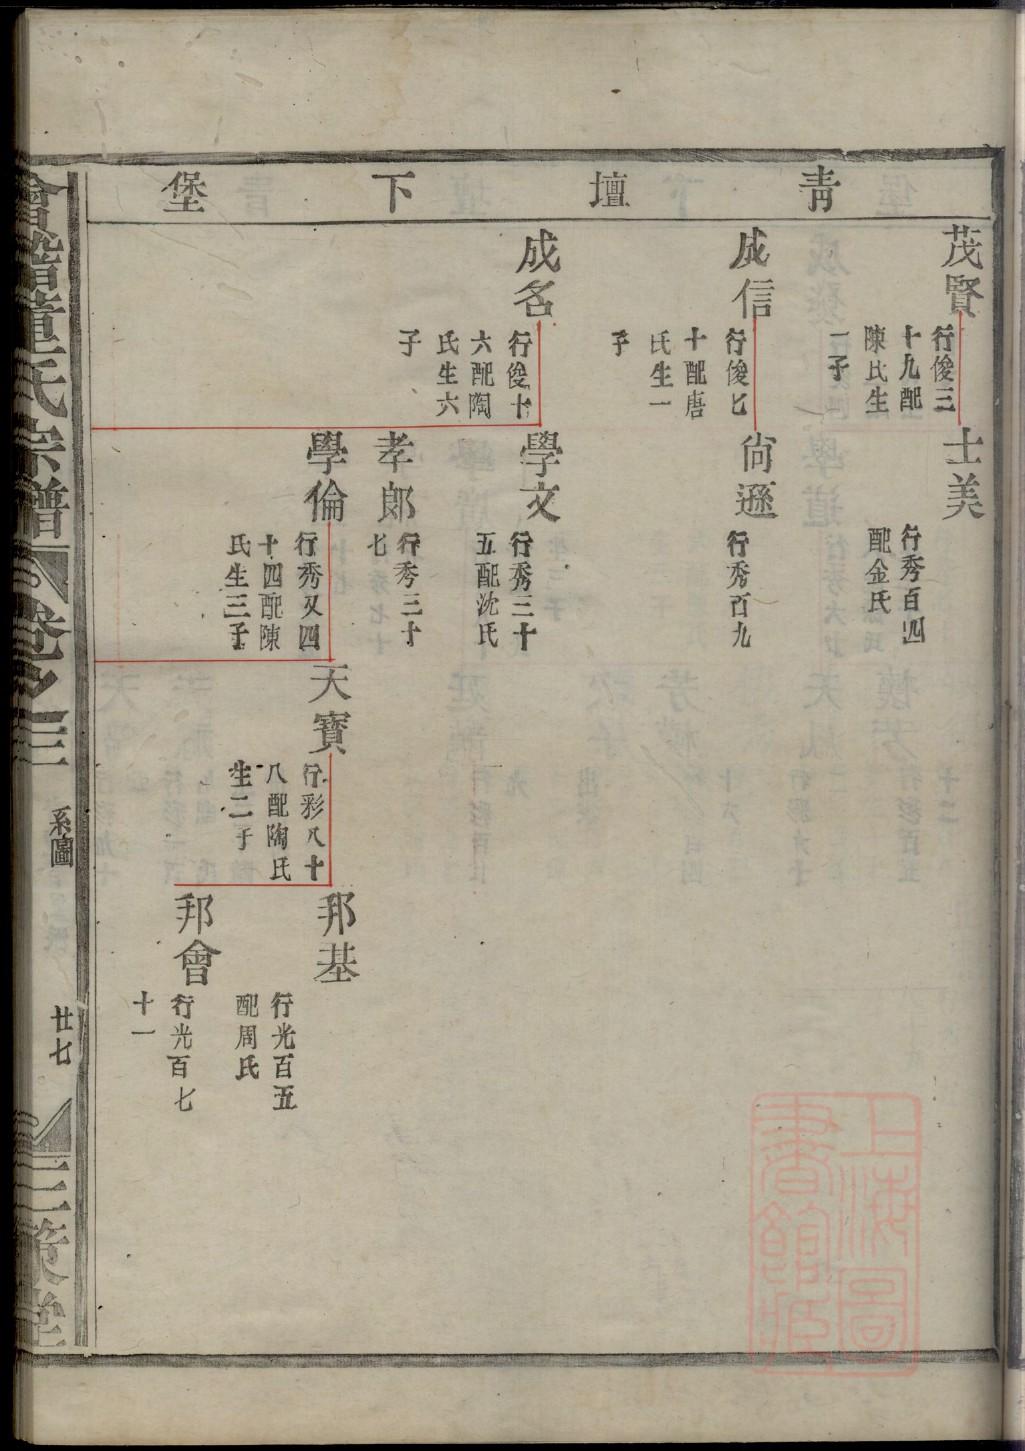 青壇下堡
茂賢
行俊三
十九配
陳氏生
一子
成信
行俊七
十配唐
氏生一
子
成名
行俊十
六配陶
氏生六
子
士美
行秀百四
配金氏
尚遜
行秀百九
學文
行秀三十
五配沈氏
孝郎
行秀三十
七
學倫
行秀又四
十四配陳
氏生三子
天寶
行彩八十
八配陶氏
生二子
邦基
行光百五
配周氏
邦會
行光百七
十一
會稽董氏宗譜
卷之三
系圖
廿七
三策堂
上海圖
書館藏